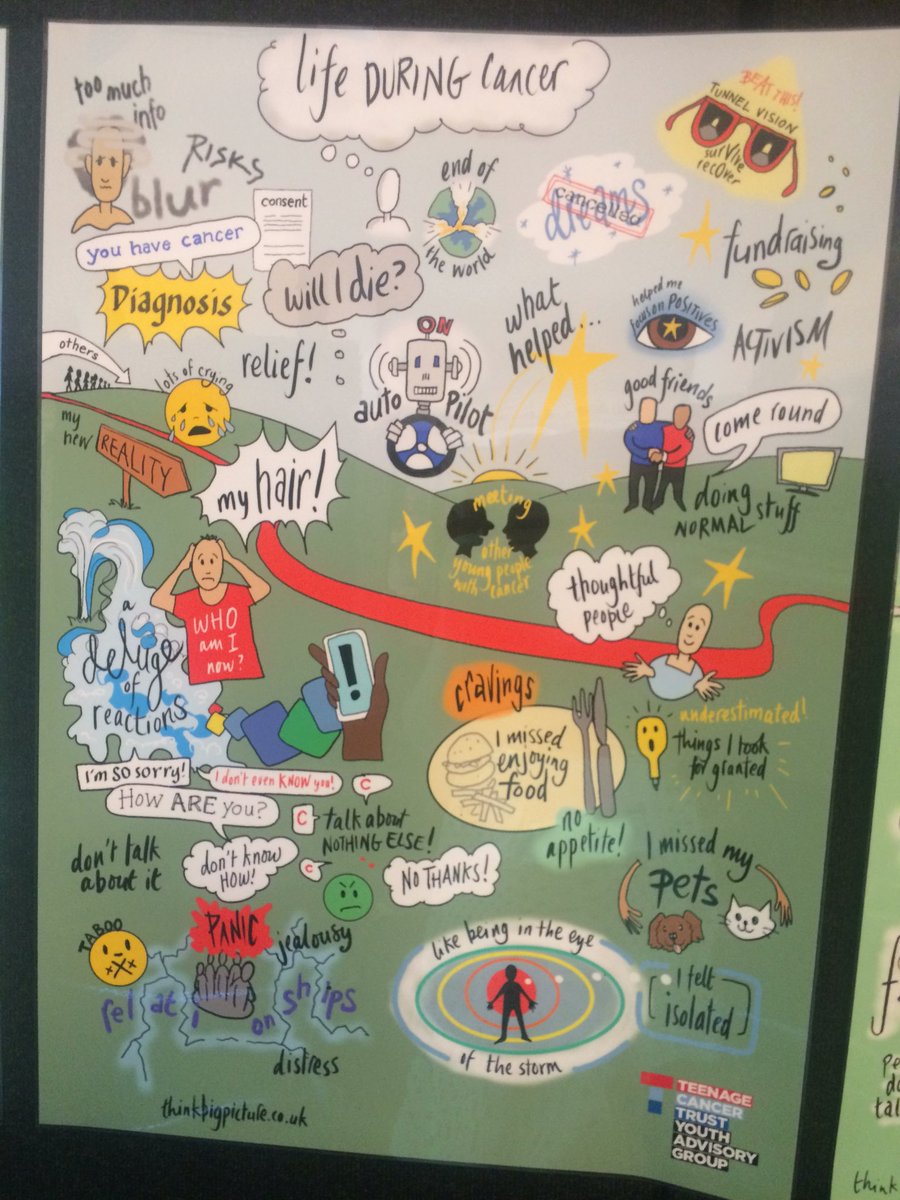 life DURING cancer
too much
info
RISKS
blur
you have cancer
Diagnosis
consent
will I die?
end of
the world
dreams
cancelled
BEAT THIS!
TUNNEL VISION
survive
recover
fundraising
ACTIVISM
others
lots of crying
relief!
ON
auto Pilot
what
helped...
helped me
focus on POSITIVES
good friends
come round
doing
NORMAL stuff
my
new
REALITY
my hair!
meeting
other
young people
with cancer
thoughtful
people
WHO
am I
now?
a
deluge
of
reactions
!
cravings
I missed
enjoying
food
no
appetite!
underestimated!
things I took
for granted
I'm SO sorry!
I don't even KNOW you!
HOW ARE you?
C
C
talk about
NOTHING ELSE!
C
don't talk
about it
don't know
HOW!
NO THANKS!
I missed my
Pets
TABOO
PANIC
jealousy
relationships
distress
like being in the eye
of the storm
I felt
isolated
thinkbigpicture.co.uk
TEENAGE
CANCER
TRUST
YOUTH
ADVISORY
GROUP
think